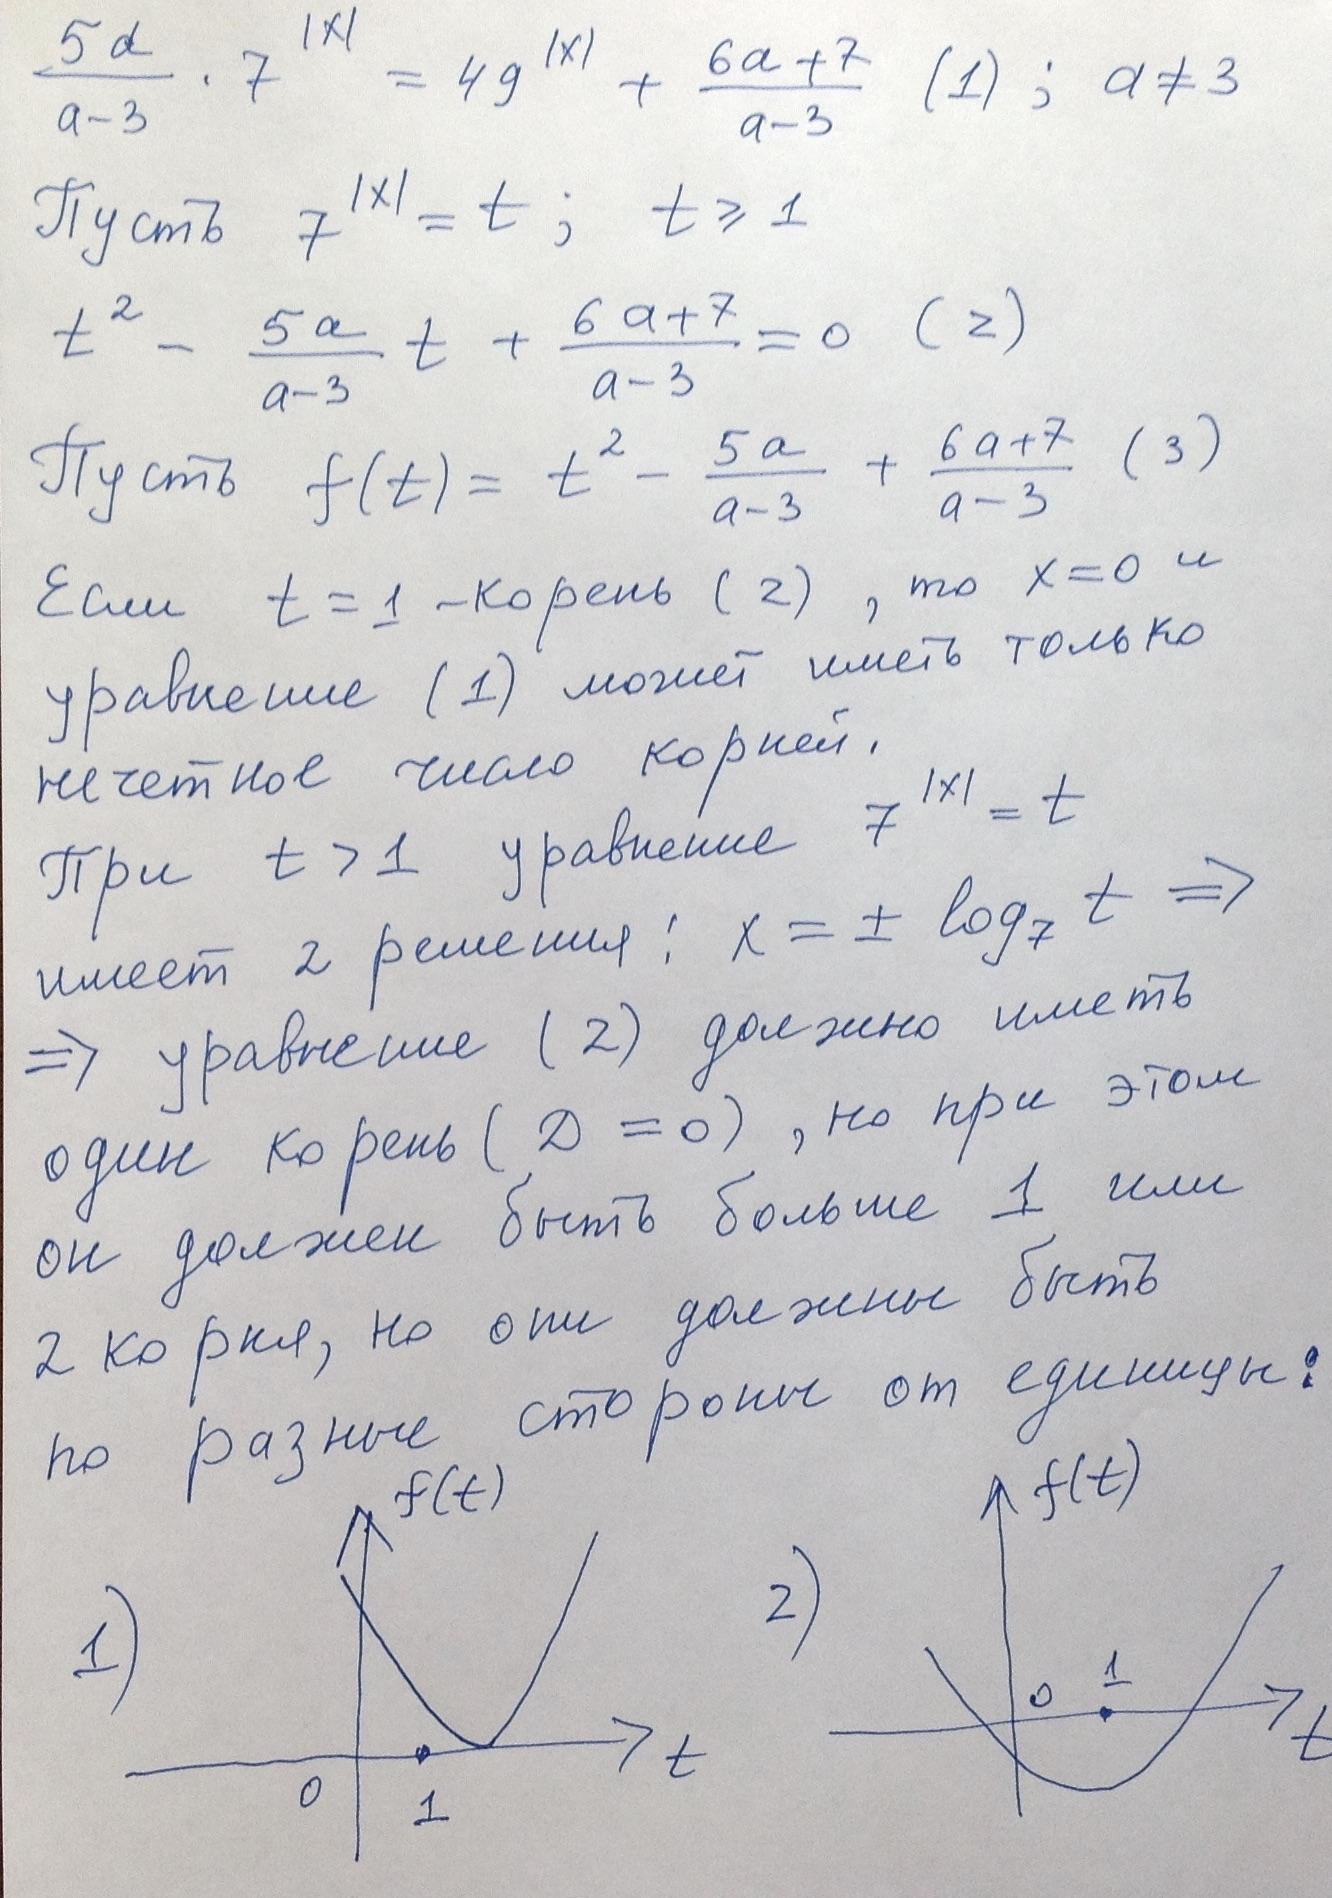 5a/(a-3) · 7^|x| = 49^|x| + (6a+7)/(a-3) (1); a≠3
Пусть 7^|x| = t; t ⩾ 1
t² - 5a/(a-3) t + (6a+7)/(a-3) = 0 (2)
Пусть f(t) = t² - 5a/(a-3) + (6a+7)/(a-3) (3)
Если t = 1 - корень (2), то x=0 и
уравнение (1) может иметь только
нечетное число корней.
При t > 1 уравнение 7^|x| = t
имеет 2 решения: x = ± log₇ t ⇒
⇒ уравнение (2) должно иметь
один корень (D = 0), но при этом
он должен быть больше 1 или
2 корня, но они должны быть
по разные стороны от единицы:
1) f(t) 0 1 t
2) f(t) 0 1 t